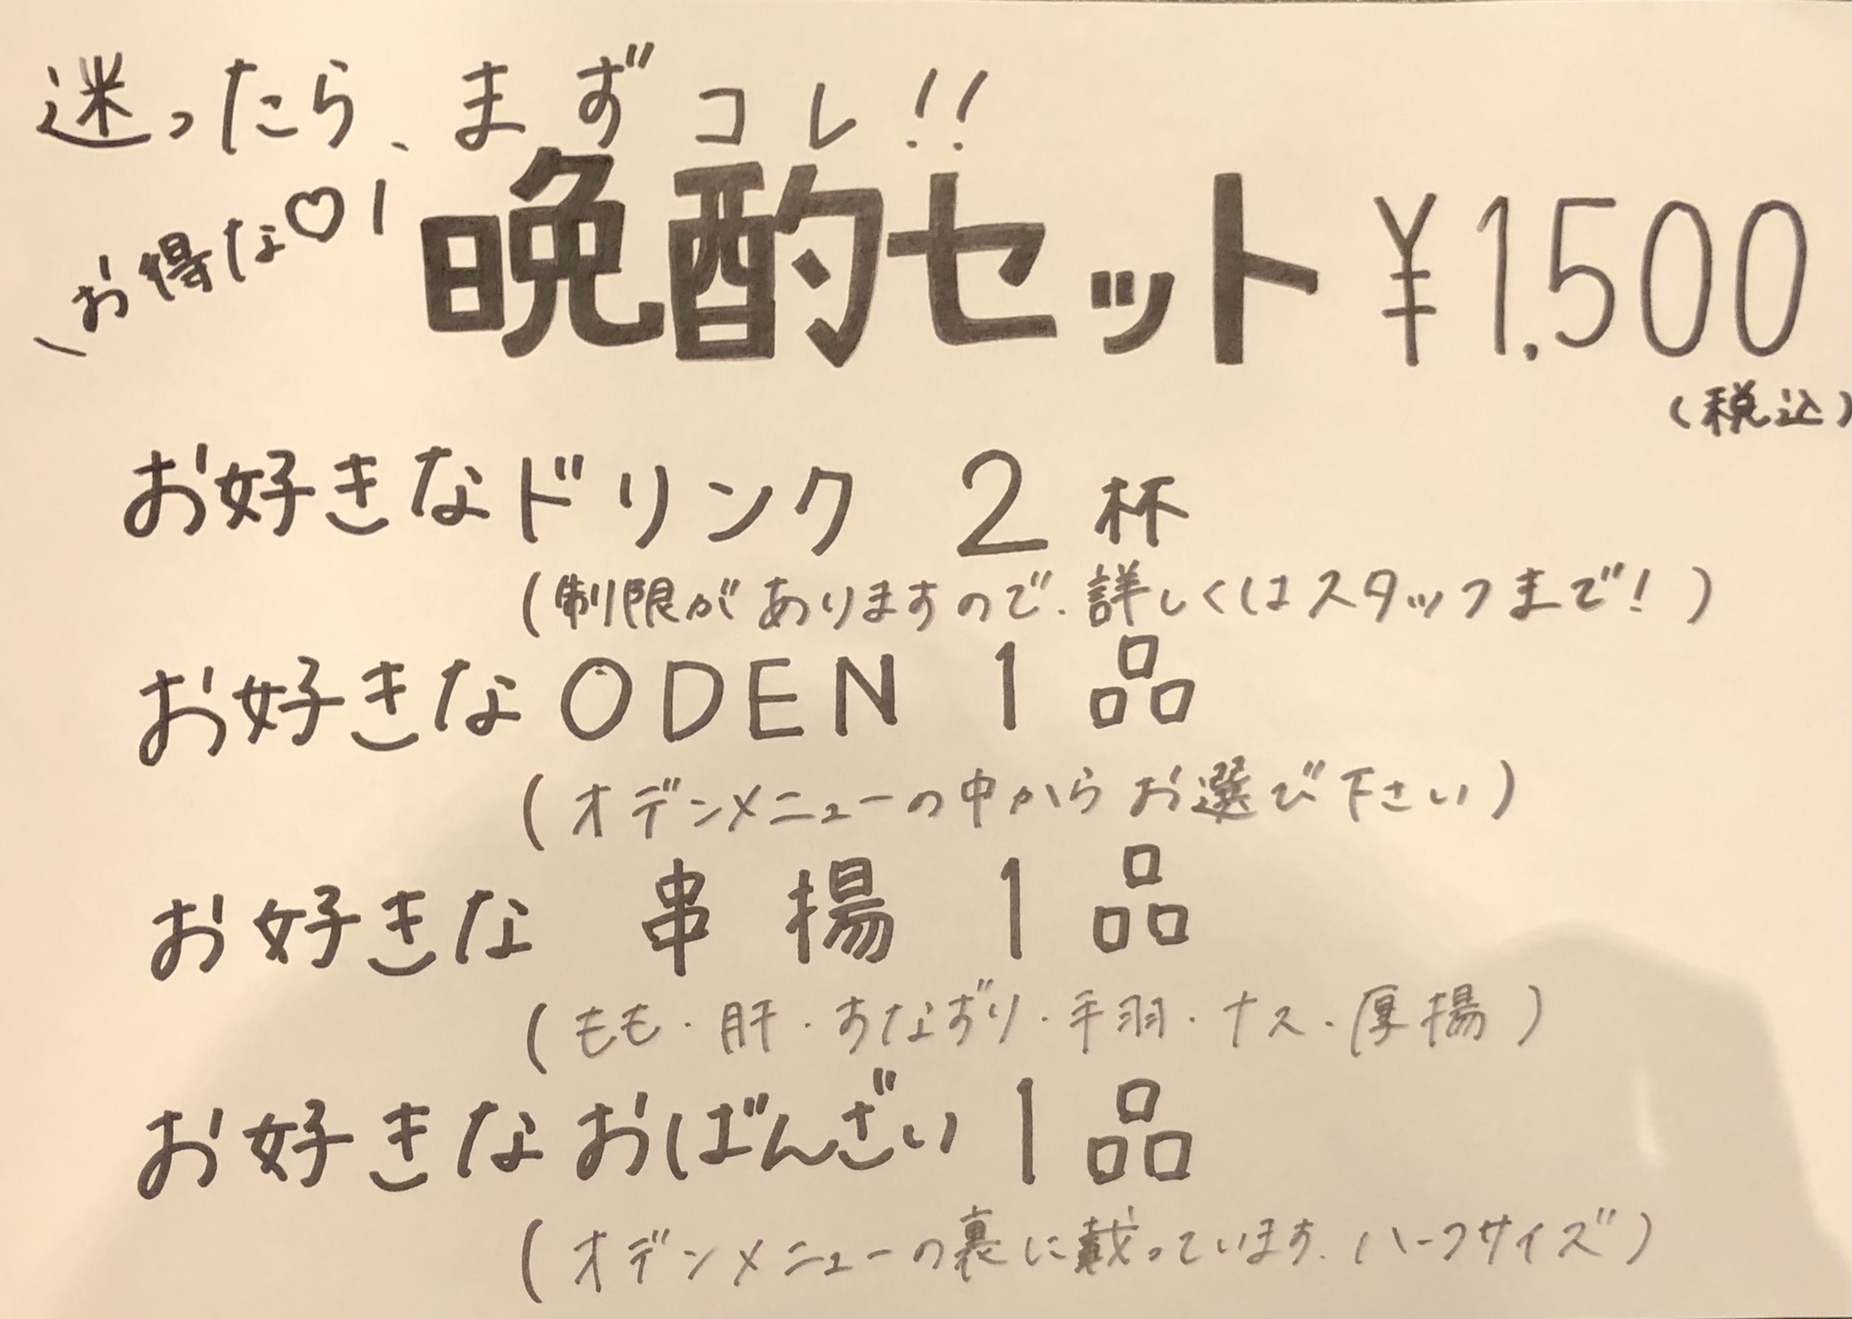 迷ったら、まずコレ!!
\お得な♡/
晩酌セット ¥1,500
(税込)
お好きなドリンク 2杯
(制限がありますので、詳しくはスタッフまで!)
お好きなODEN 1品
(オデンメニューの中からお選び下さい)
お好きな 串揚 1品
(もも・肝・すなずり・手羽・ナス・厚揚)
お好きなおばんざい 1品
(オデンメニューの裏に戴っています、ハーフサイズ)